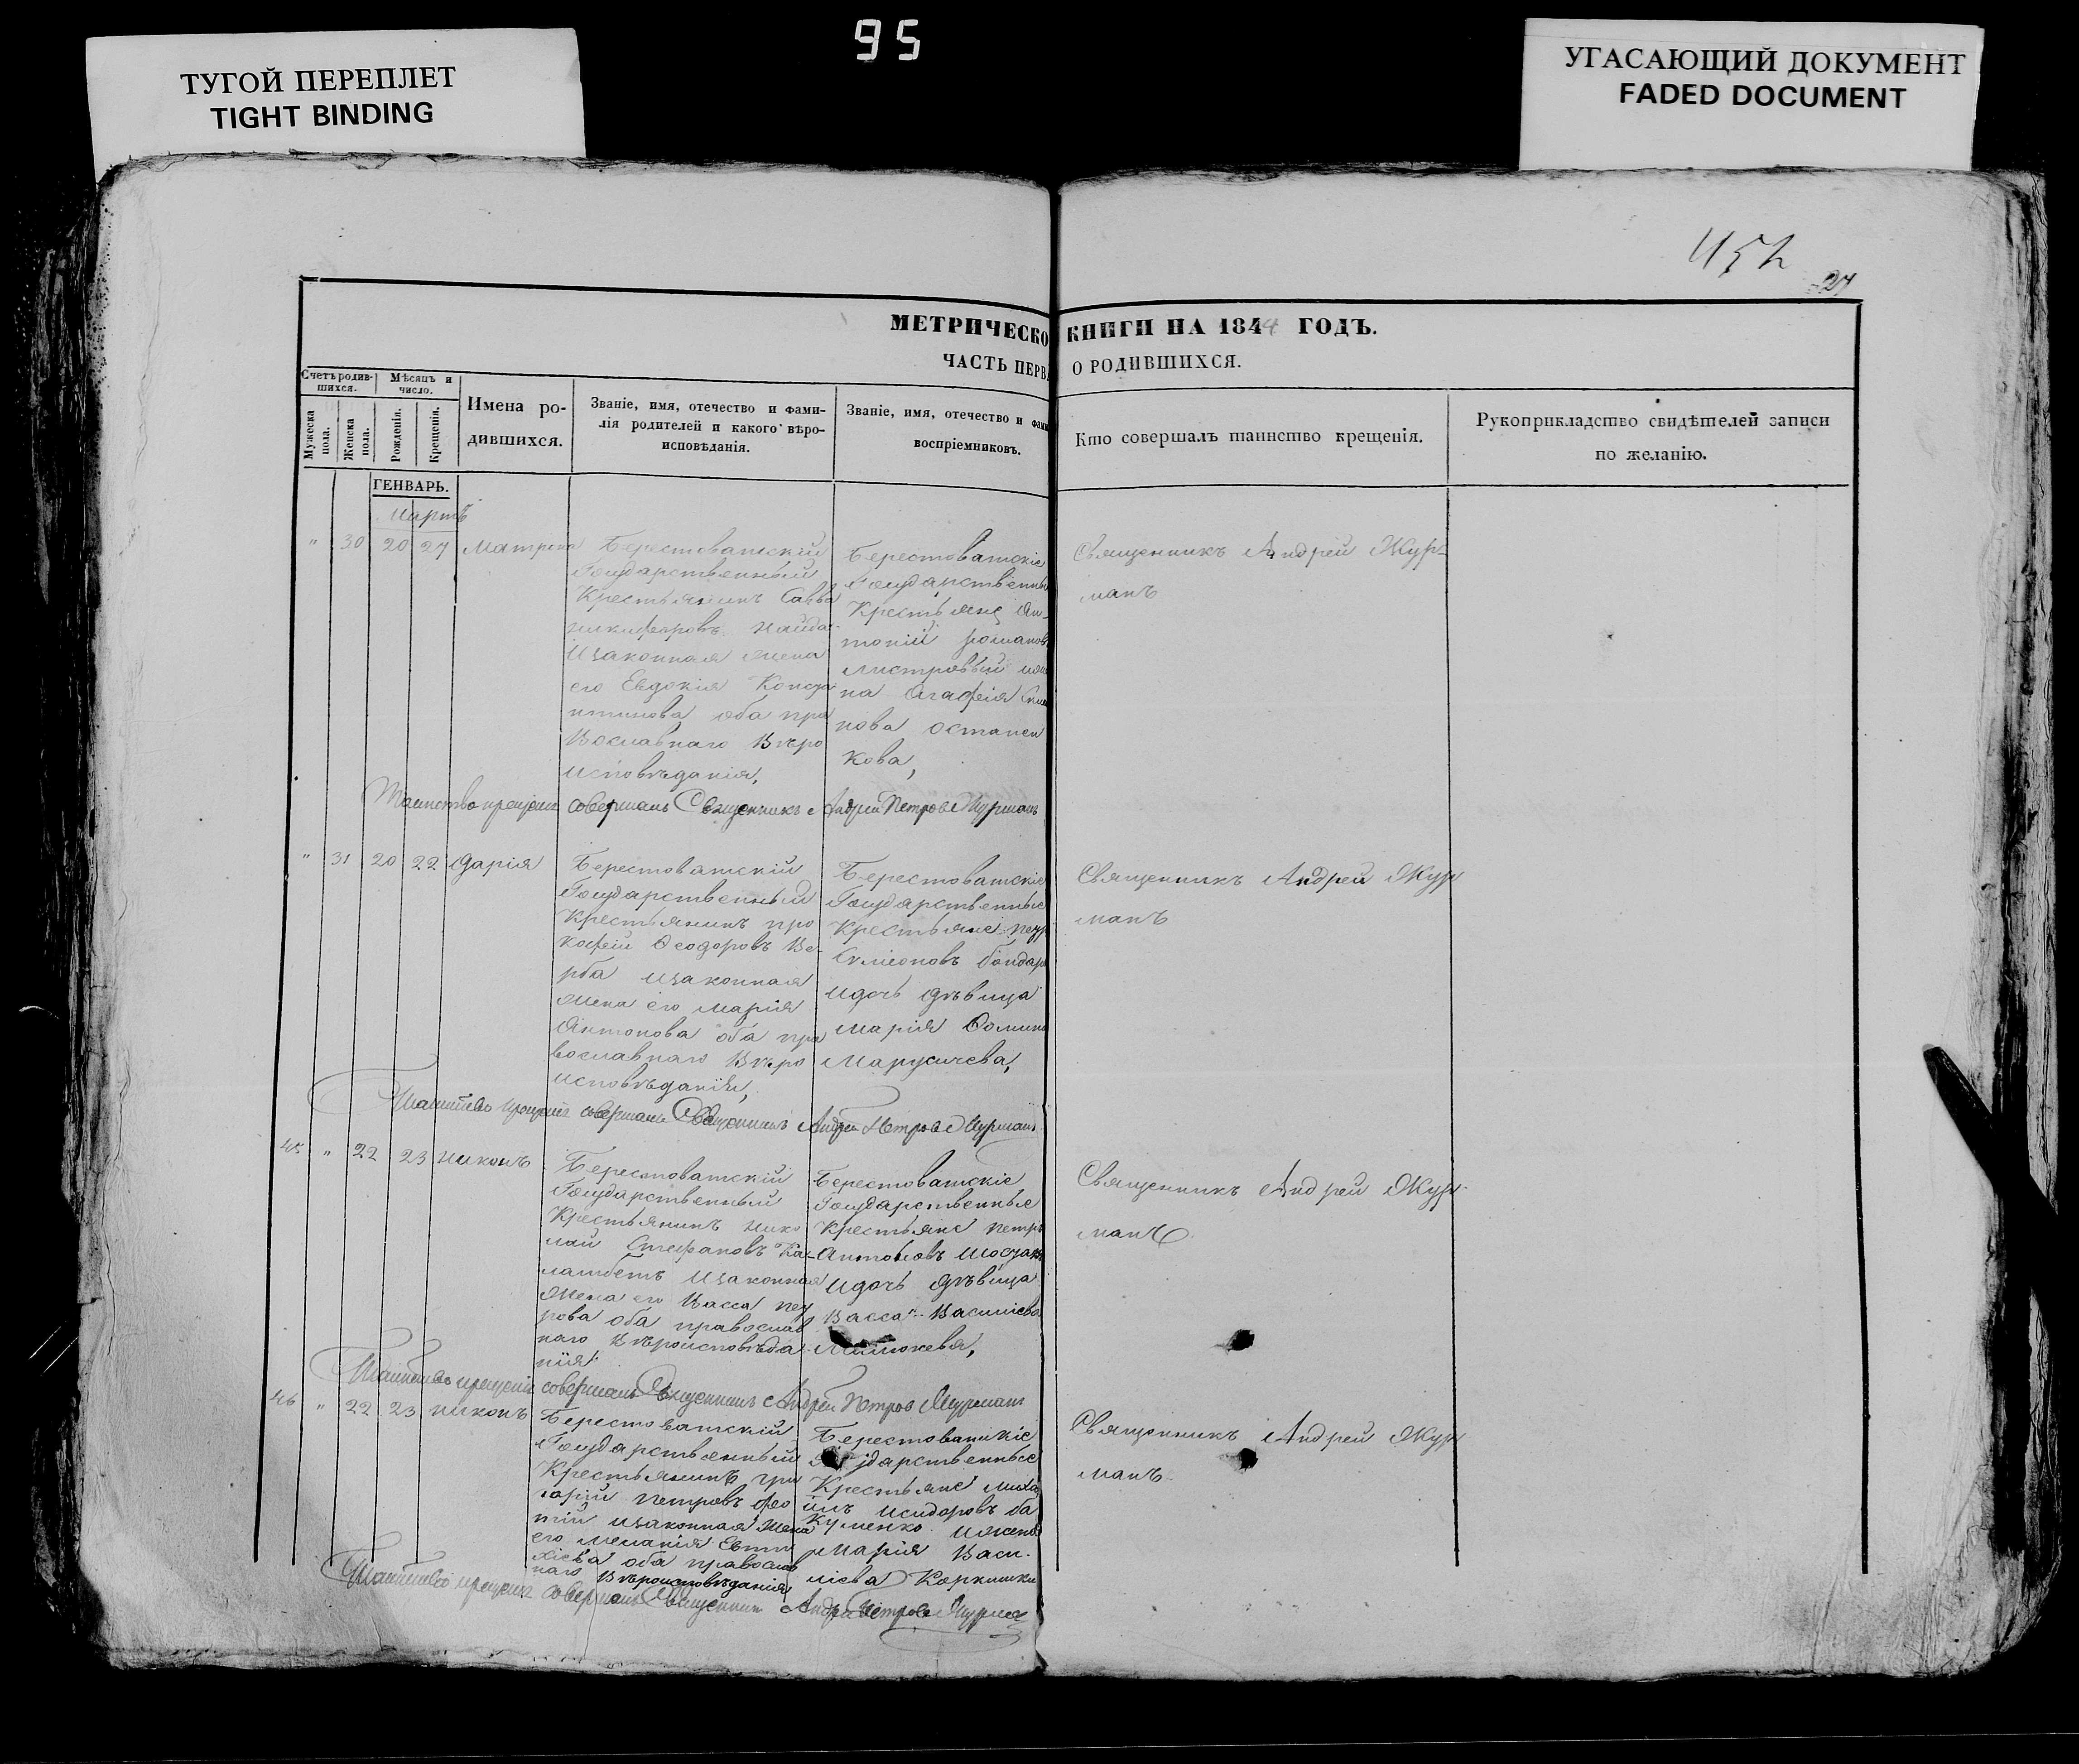 95
ТУГОЙ ПЕРЕПЛЕТ
TIGHT BINDING
УГАСАЮЩИЙ ДОКУМЕНТ
FADED DOCUMENT
452
27
МЕТРИЧЕСКО КНИГИ НА 1844 ГОДЪ.
ЧАСТЬ ПЕРВА О РОДИВШИХСЯ.
Счетъ родив-
шихся.
Мѣсяцъ и
число.
Мужеска
пола.
Женска
пола.
Рожденія.
Крещенія.
Имена ро-
дившихся.
Званіе, имя, отечество и фами-
лія родителей и какого вѣро-
исповѣданія.
Званіе, имя, отечество и фами
воспріемниковъ.
Кто совершалъ таинство крещенія.
Рукоприкладство свидѣтелей записи
по желанію.
ГЕНВАРЬ.
Мартъ
" 30 20 27 Матрона
Берестоватскій
Государственный
Крестьянинъ Савва
Никифоровъ Найда
Изаконная жена
его Евдокія Конста
нтинова оба пра
вославнаго вѣро
исповѣданія,
Берестоватскіе
Государственны
Крестьяне Ан-
тоній Романов
Листровый
на Агафія
нова Остапен
кова,
Священникъ Андрей Жур-
манъ
Таинство крещенія совершалъ Священникъ Андрей Петровъ Журманъ
" 31 20 22 Дарія
Берестоватскій
Государственный
Крестьянинъ Про
кофій Ѳеодоровъ Ве-
рба изаконная
жена его Марія
Антонова оба пра
вославнаго вѣро
исповѣданія,
Берестоватскіе
Государственные
Крестьяне Петр
Сѵмеоновъ Бондар
идочь дѣвица
Марія Ѳомина
Марусичева,
Священникъ Андрей Жур
манъ
Таинство крещенія совершалъ Священникъ Андрей Петровъ Журманъ
45 " 22 23 Никонъ
Берестоватскій
Государственный
Крестьянинъ Нико
лай Стефановъ Ка-
лашеть изаконная
жена его Васса Пет
рова оба православ
наго вѣроисповѣда
нія.
Берестоватскіе
Государственные
Крестьяне Петръ
Антоновъ
идочь дѣвица
Васса Василіева
Священникъ Андрей Жур-
манъ
Таинство крещенія совершалъ Священникъ Андрей Петровъ Журманъ
46 " 22 23 Никонъ
Берестоватскій
Государственный
Крестьянинъ Гри
горій Петровъ
изаконная жена
его Меланія Евти
хіева оба православ
наго вѣроисповѣданія
Берестоватскіе
Государственные
Крестьяне Миха
илъ Исидоровъ Ба
куменко ижена
Марія Васи-
ліева
Священникъ Андрей Жур
манъ
Таинство крещенія совершалъ Священникъ Андрей Петровъ Журман